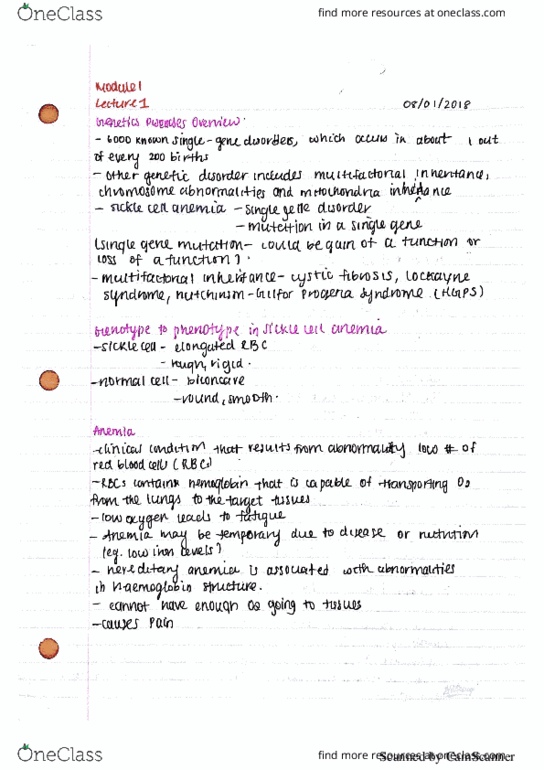 OneClass
find more resources at oneclass.com
Module 1
Lecture 1
08/01/2018
Genetics Diseases Overview:
- 6000 known single-gene disorders, which occurs in about 1 out
of every 200 births
- Other genetic disorder includes multifactorial inheritance,
chromosome abnormalities and mitochondria inheritance
- sickle cell anemia - single gene disorder
- mutation in a single gene
(single gene mutation - could be gain of a function or
loss of a function).
- multifactorial inheritance - cystic fibrosis, Cockayne
syndrome, Hutchinson-Gilfor Progeria Syndrome (HGPS)
Genotype to phenotype in sickle cell anemia
- sickle cell - elongated RBC
- rough, rigid.
- normal cell - biconcave
- round, smooth.
Anemia
- clinical condition that results from abnormality low # of
red blood cells (RBCs)
- RBCs contains hemoglobin that is capable of transporting O2
from the lungs to the target tissues
- low oxygen leads to fatigue
- Anemia may be temporary due to disease or nutrition
(eg. low iron levels)
- hereditary anemia is associated with abnormalities
in haemoglobin structure.
- cannot have enough O2 going to tissues
- causes pain
OneClass
find more resources at oneclass.com
Scanned by CamScanner